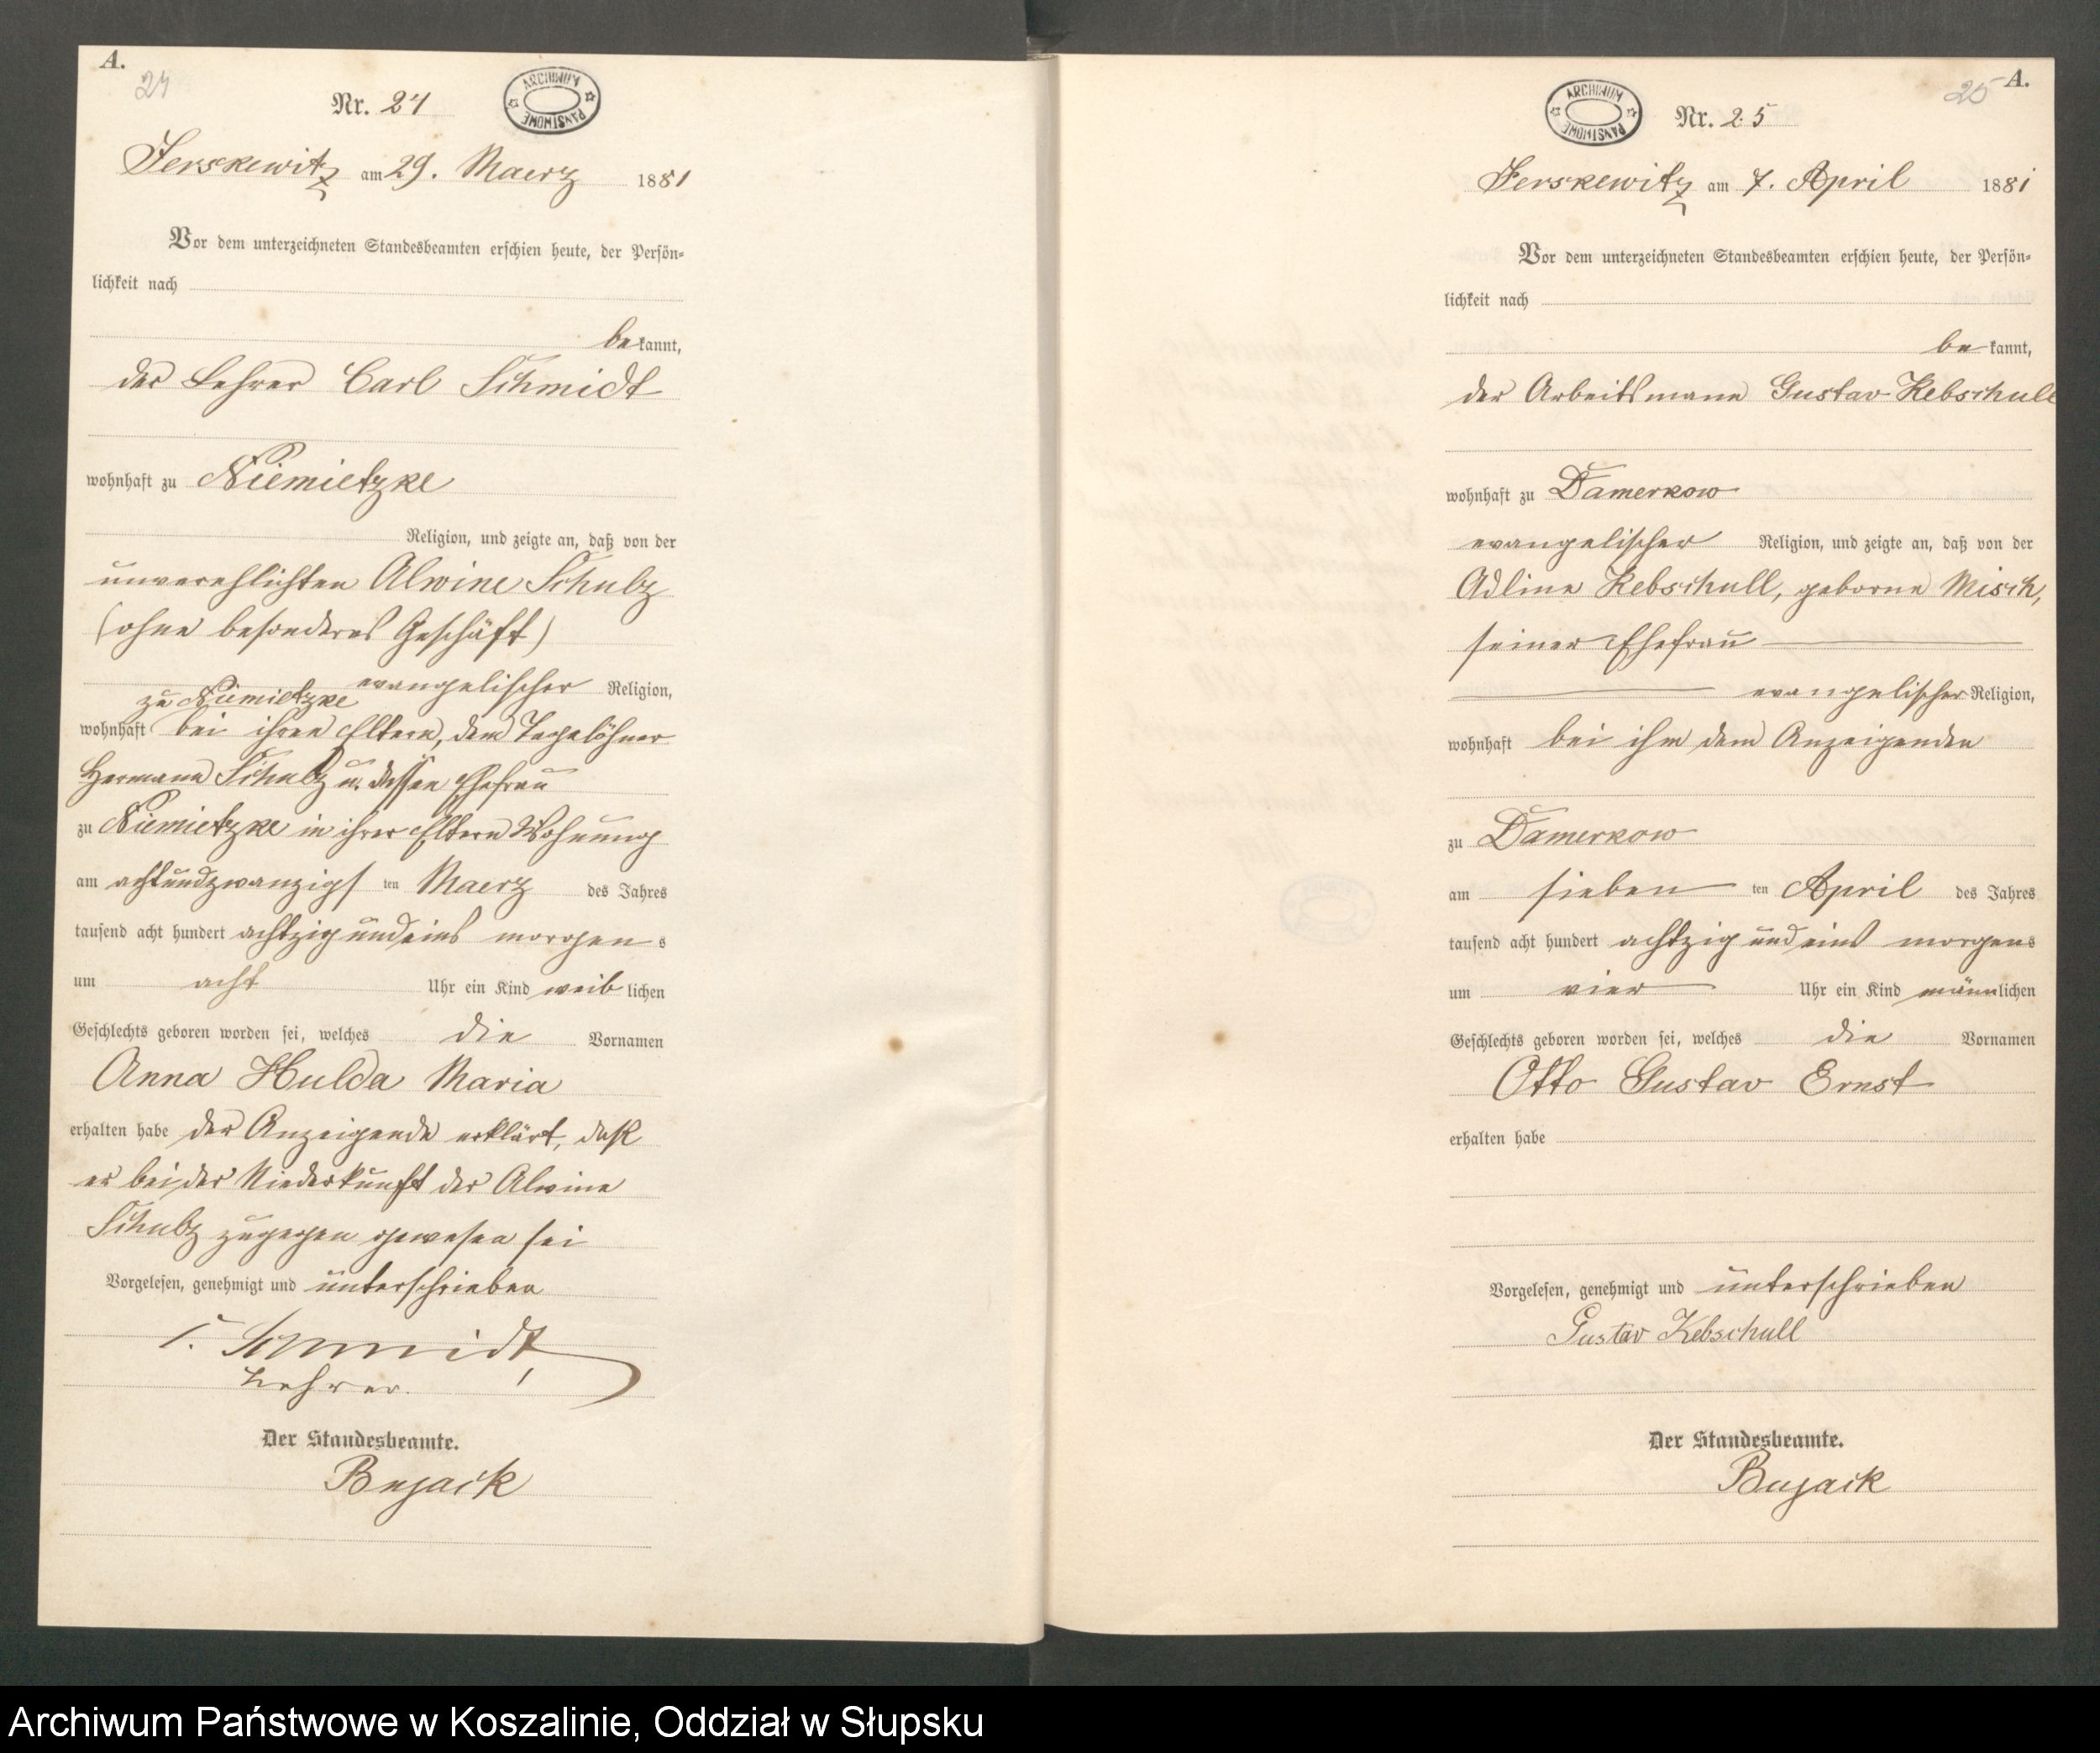 A.
24
Nr. 24
ARCHIWUM PAŃSTWOWE
Jerskewitz am 29. Maerz 1881
Vor dem unterzeichneten Standesbeamten erschien heute, der Persön-
lichkeit nach
bekannt,
der Lehrer Carl Schmidt
wohnhaft zu Niemietzke
Religion, und zeigte an, daß von der
unverehlichten Alwine Schulz
(ohne besonderes Geschäft)
evangelischer Religion,
zu Niemietzke
wohnhaft bei ihren Eltern, dem Tagelöhner
Hermann Schulz u. dessen Ehefrau
zu Niemietzke in ihrer Eltern Wohnung
am achtundzwanzigsten Maerz des Jahres
tausend acht hundert achtzig und eins morgens
um acht Uhr ein Kind weiblichen
Geschlechts geboren worden sei, welches die Vornamen
Anna Hulda Maria
erhalten habe der Anzeigende erklärt, daß
er bei der Niederkunft der Alwine
Schulz zugegen gewesen sei
Vorgelesen, genehmigt und unterschrieben
C. Schmidt,
Lehrer.
Der Standesbeamte.
Bujack
25
A.
ARCHIWUM PAŃSTWOWE
Nr. 25
Jerskewitz am 7. April 1881
Vor dem unterzeichneten Standesbeamten erschien heute, der Persön-
lichkeit nach
bekannt,
der Arbeitsmann Gustav Kebschull
wohnhaft zu Damerkow
evangelischer Religion, und zeigte an, daß von der
Adline Kebschull, geborne Misch,
seiner Ehefrau
evangelischer Religion,
wohnhaft bei ihm dem Anzeigenden
zu Damerkow
am siebenten April des Jahres
tausend acht hundert achtzig und eins morgens
um vier Uhr ein Kind männlichen
Geschlechts geboren worden sei, welches die Vornamen
Otto Gustav Ernst
erhalten habe
Vorgelesen, genehmigt und unterschrieben
Gustav Kebschull
Der Standesbeamte.
Bujack
Archiwum Państwowe w Koszalinie, Oddział w Słupsku